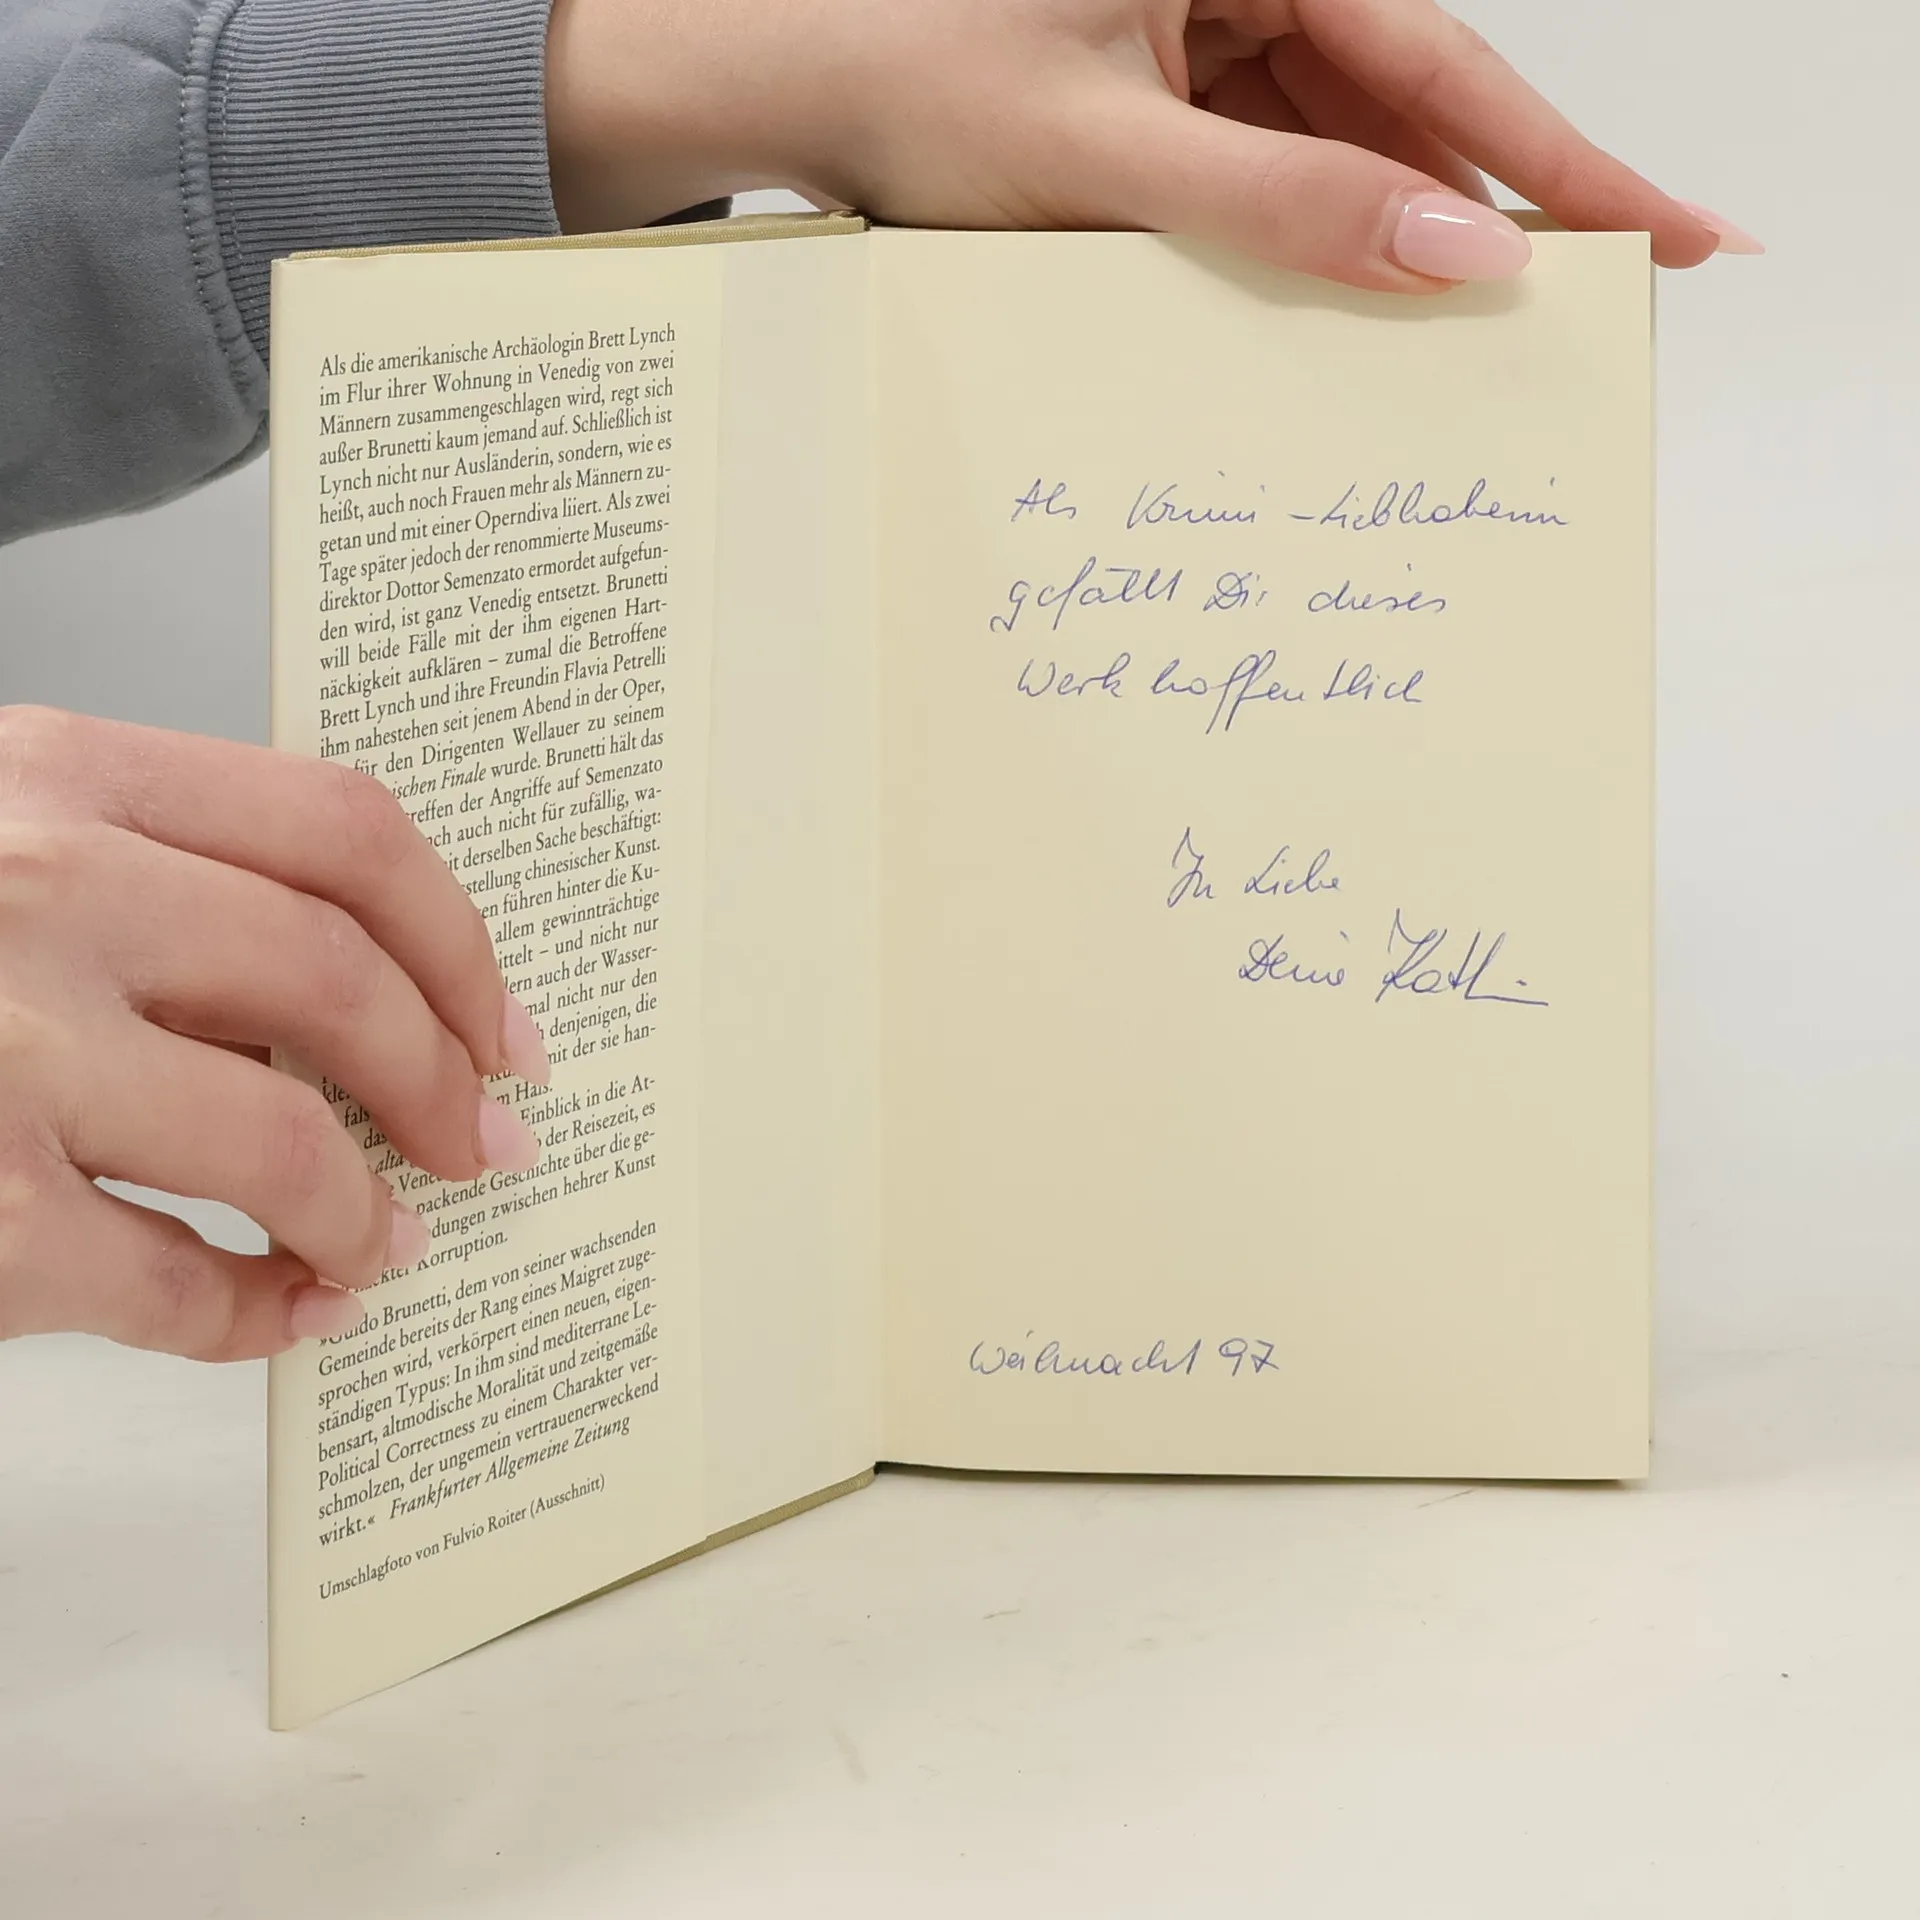 Als die amerikanische Archäologin Brett Lynch
im Flur ihrer Wohnung in Venedig von zwei
Männern zusammengeschlagen wird, regt sich
außer Brunetti kaum jemand auf. Schließlich ist
Lynch nicht nur Ausländerin, sondern, wie es
heißt, auch noch Frauen mehr als Männern zu-
getan und mit einer Operndiva liiert. Als zwei
Tage später jedoch der renommierte Museums-
direktor Dottor Semenzato ermordet aufgefun-
den wird, ist ganz Venedig entsetzt. Brunetti
will beide Fälle mit der ihm eigenen Hart-
näckigkeit aufklären – zumal die Betroffene
Brett Lynch und ihre Freundin Flavia Petrelli
ihm nahestehen seit jenem Abend in der Oper,
für den Dirigenten Wellauer zu seinem
ischen Finale wurde. Brunetti hält das
reffen der Angriffe auf Semenzato
auch nicht für zufällig, wa-
it derselben Sache beschäftigt:
stellung chinesischer Kunst.
en führen hinter die Ku-
allem gewinnträchtige
ittelt – und nicht nur
dern auch der Wasser-
mal nicht nur den
denjenigen, die
mit der sie han-
m Hals.
Einblick in die At-
der Reisezeit, es
packende Geschichte über die ge-
dungen zwischen hehrer Kunst
Korruption.
»Guido Brunetti, dem von seiner wachsenden
Gemeinde bereits der Rang eines Maigret zuge-
sprochen wird, verkörpert einen neuen, eigen-
ständigen Typus: In ihm sind mediterrane Le-
bensart, altmodische Moralität und zeitgemäße
Political Correctness zu einem Charakter ver-
schmolzen, der ungemein vertrauenerweckend
wirkt.« Frankfurter Allgemeine Zeitung
Umschlagfoto von Fulvio Roiter (Ausschnitt)
Als Krimi-Liebhaberin
gefällt Dir dieses
Werk hoffentlich
In Liebe
Deine Kathi
Weihnacht 97